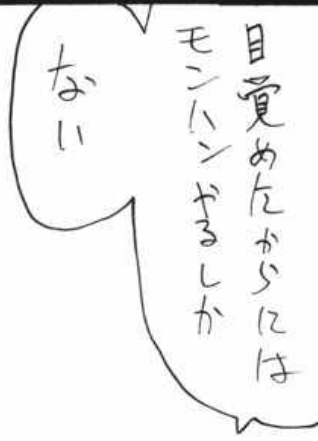 目覚めたからには
モンハンやるしか
ない